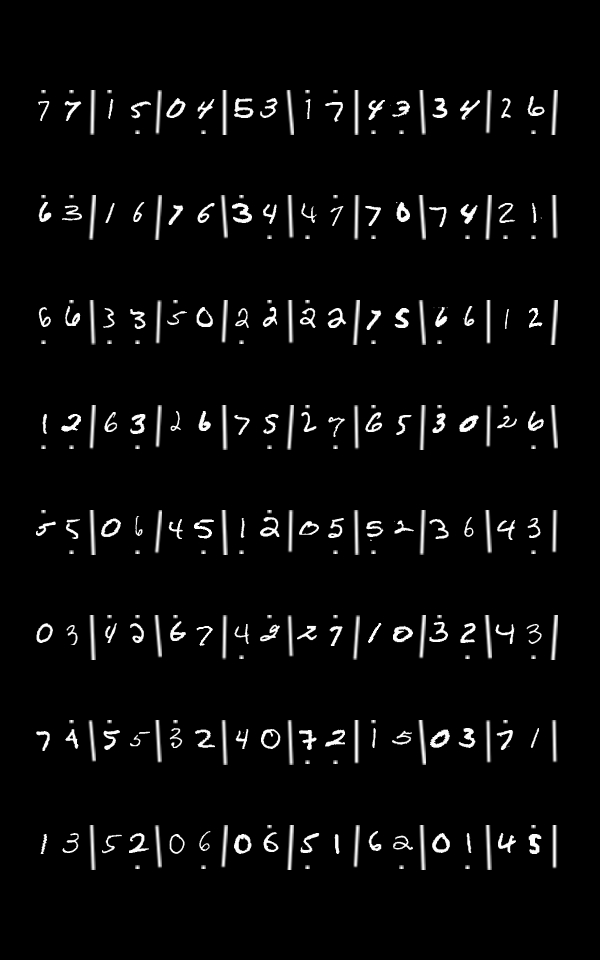 7̇ 7̇ | 1̇ 5̣ | 0 4̣ | 5 3 | 1̇ 7̇ | 4̣ 3̣ | 3 4 | 2 6̣ |
6̇ 3̇ | 1 6 | 7 6 | 3̇ 4̣ | 4̣ 7̇ | 7̣ 0 | 7 4̣ | 2̣ 1̣ |
6̣ 6̇ | 3 3̣ | 5̇ 0 | 2̣ 2̇ | 2̇ 2 | 7̣ 5 | 6̣ 6 | 1 2 |
1̣ 2̣ | 6 3̣ | 2̇ 6 | 7 5̣ | 2̇ 7̣ | 6̇ 5 | 3̇ 0 | 2̇ 6̣ |
5̇ 5̣ | 0 6̣ | 4 5̣ | 1̣ 2̇ | 0 5̣ | 5̣ 2 | 3 6 | 4 3̣ |
0 3 | 4̇ 2̇ | 6̇ 7 | 4̣ 2̇ | 2 7̇ | 1 0 | 3̇ 2̣ | 4 3̣ |
7 4̇ | 5̇ 5 | 3̇ 2 | 4 0 | 7̣ 2̣ | 1̇ 5 | 0 3 | 7̇ 1 |
1 3 | 5 2̣ | 0 6̣ | 0 6̇ | 5̣ 1 | 6 2̣ | 0 1̣ | 4 5̇ |